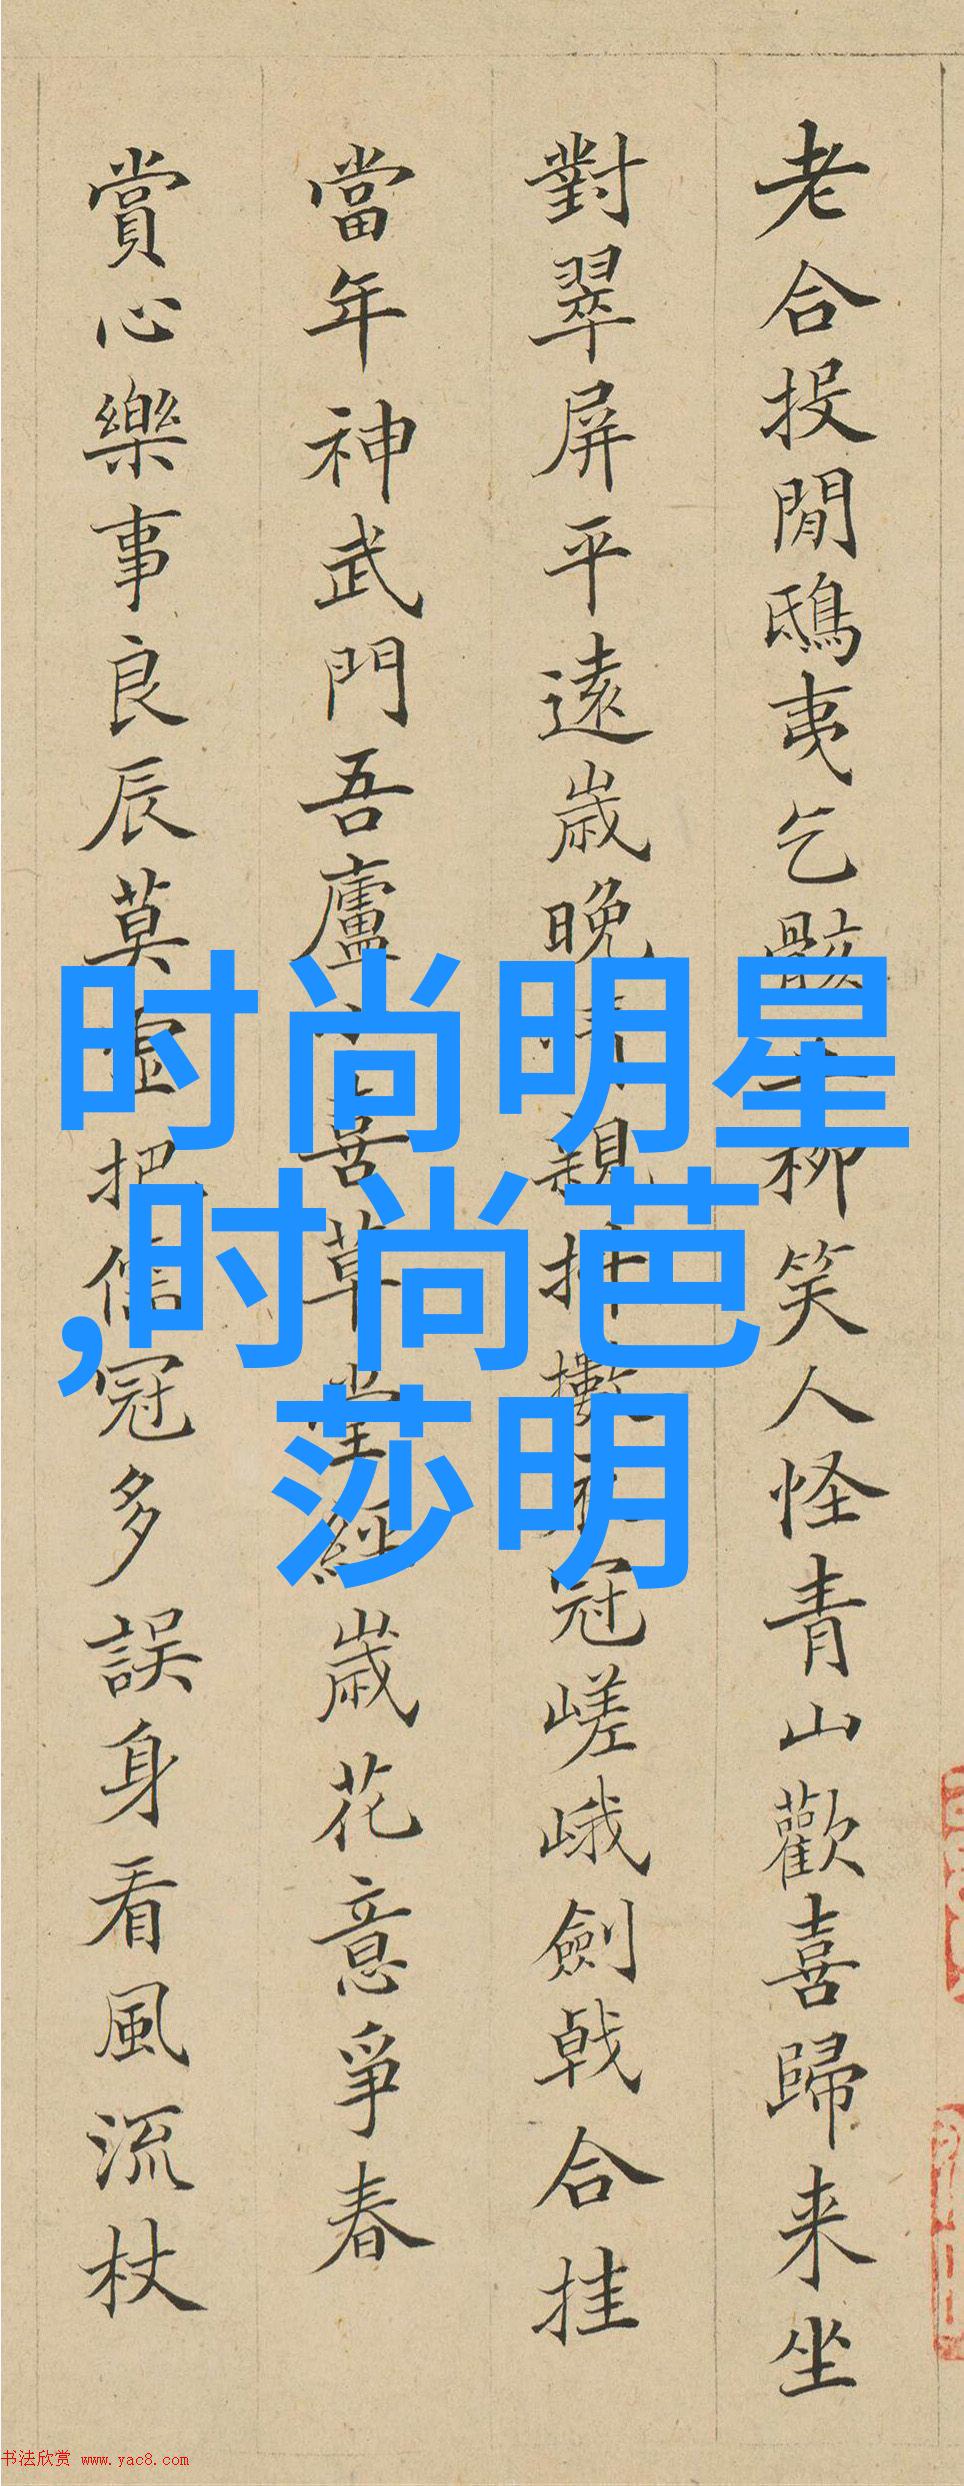 老合投閒鴟夷乞骸柳笑人怪青山歡喜歸来坐
對翠屏平遠歲晚親抖擻冠嵯峨劍戟合挂
當年神武門吾廬草堂經歲花意爭春
賞心樂事良辰莫虛把儒冠多誤身看風流杖
时尚明星
,时尚芭
莎明
书法欣赏 www.yac8.com